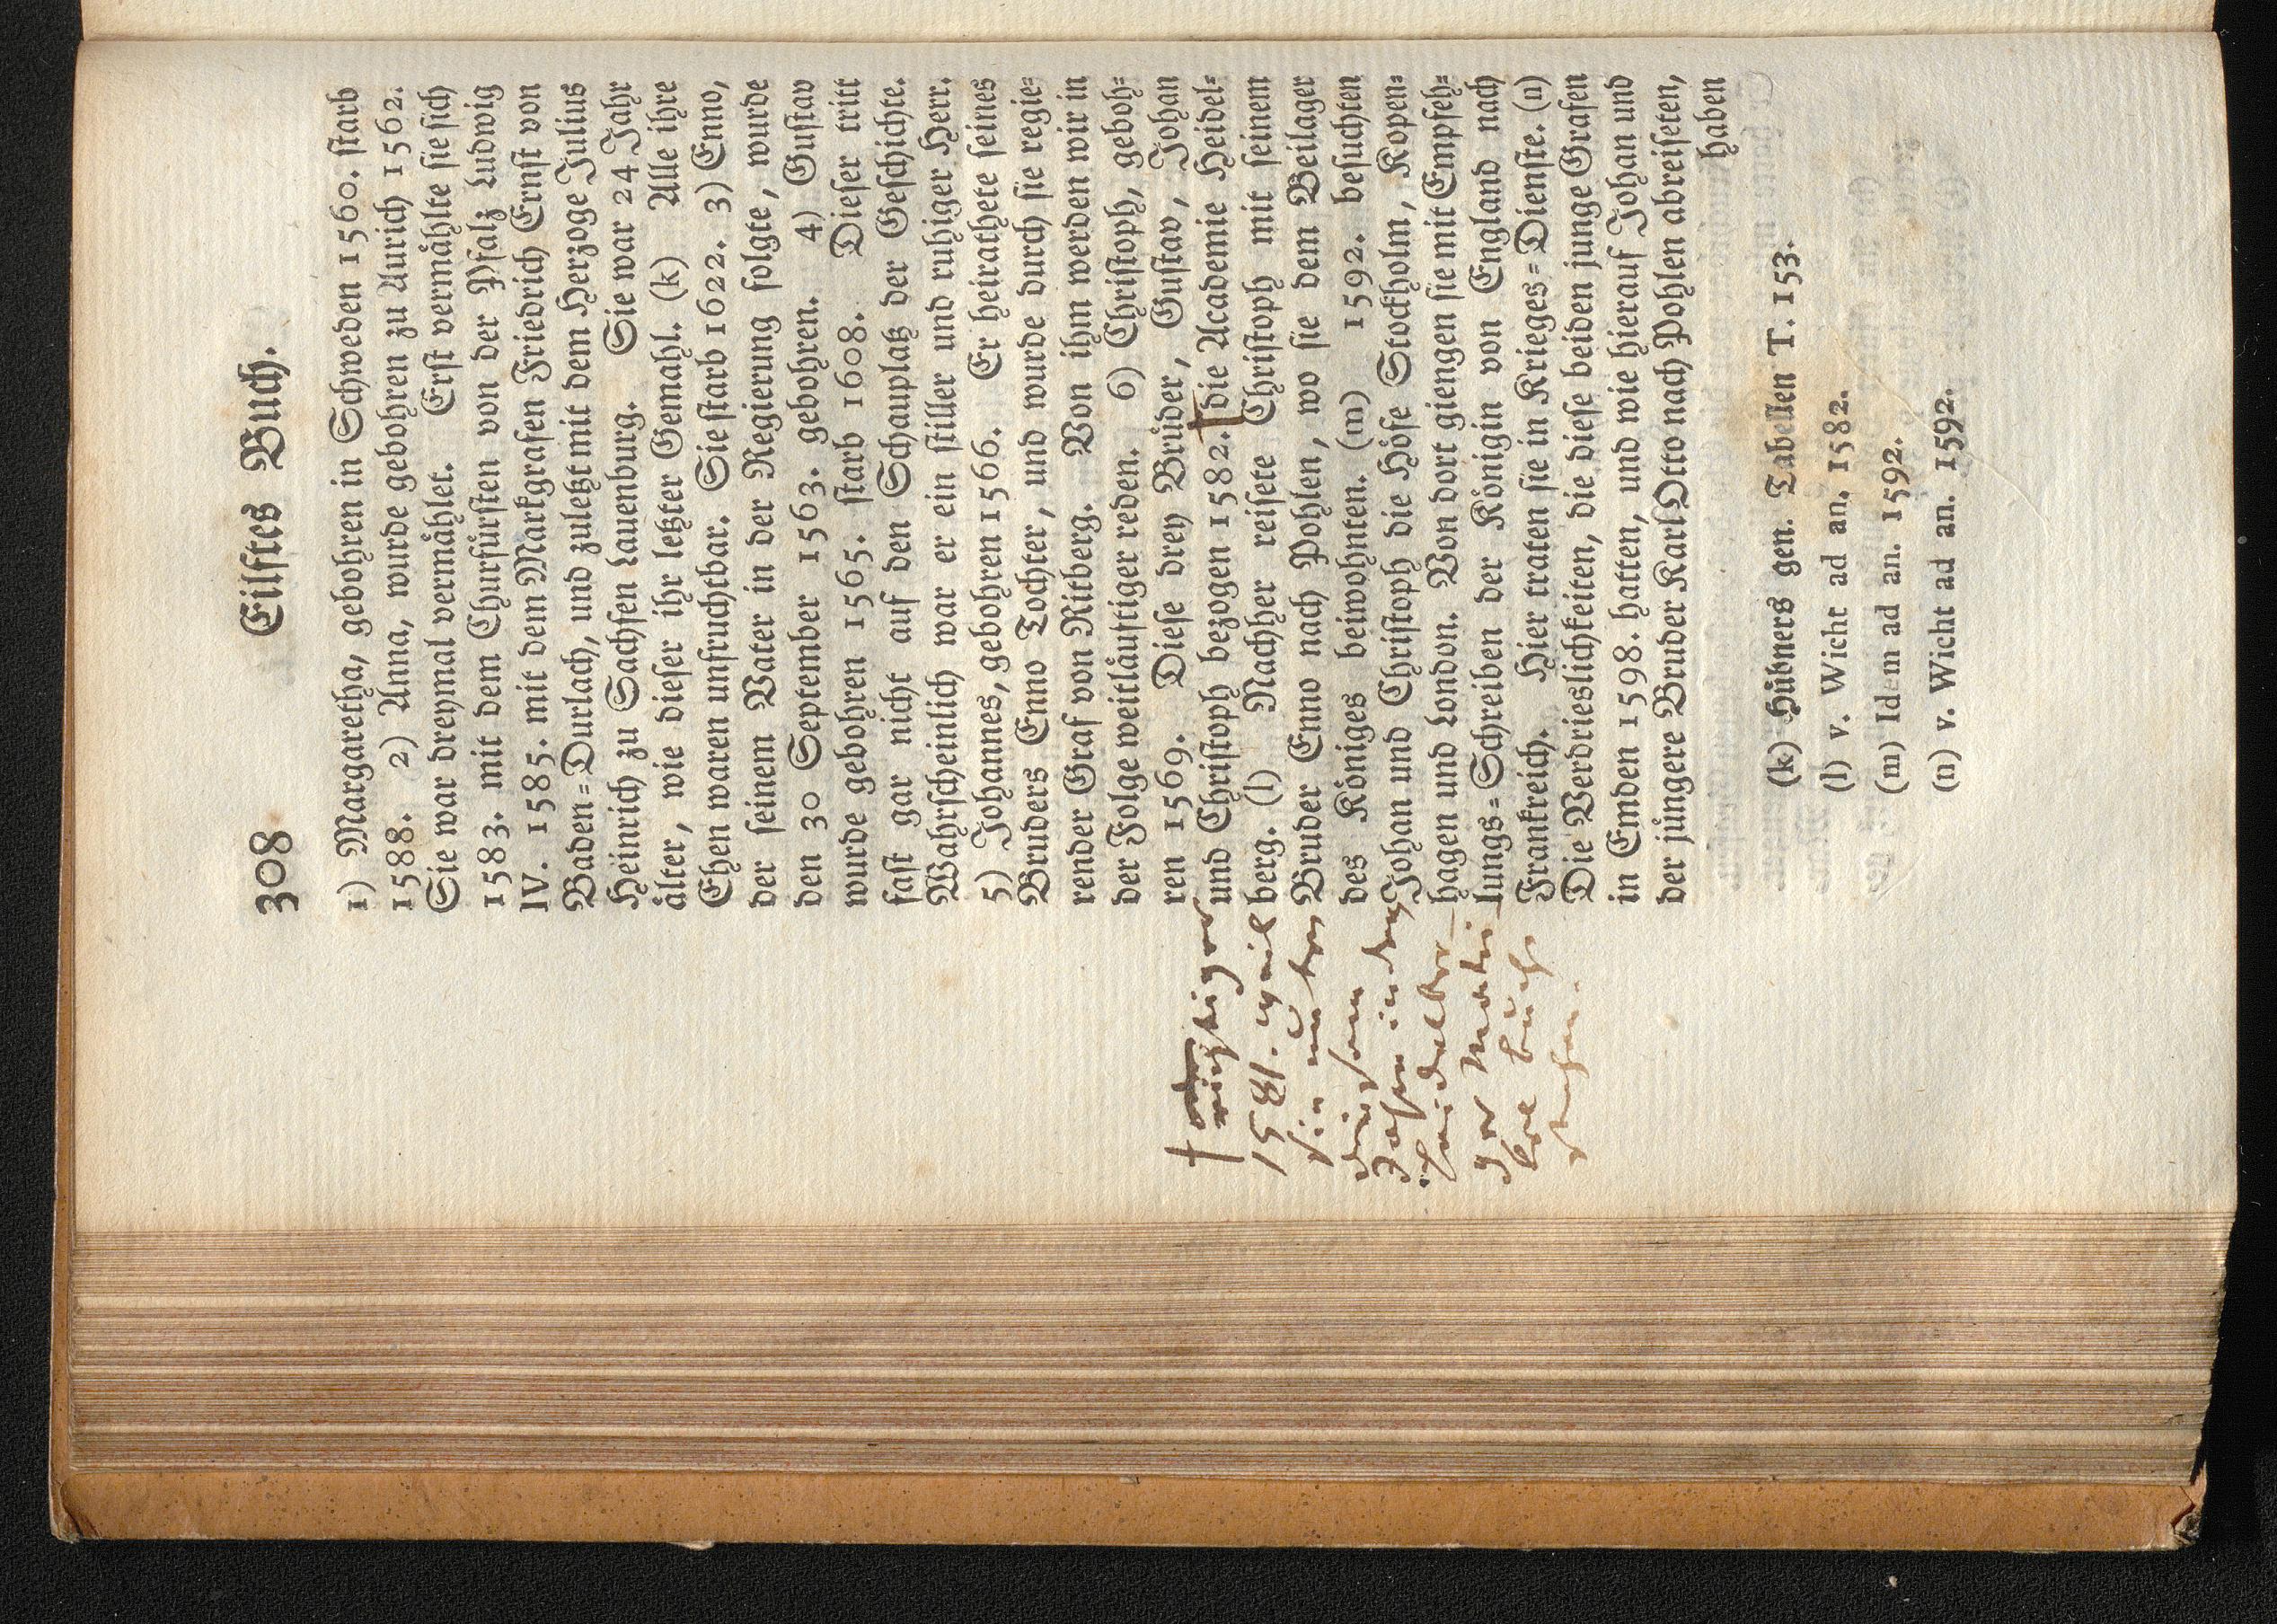 308 Eilftes Buch.
1) Margaretha, gebohren in Schweden 1560. starb
1588. 2) Anna, wurde gebohren zu Aurich 1562.
Sie war dreymal vermählet. Erst vermählte sie sich
1583. mit dem Churfürsten von der Pfalz Ludwig
IV. 1585. mit dem Markgrafen Friedrich Ernst von
Baden=Durlach, und zuletzt mit dem Herzoge Julius
Heinrich zu Sachsen Lauenburg. Sie war 24 Jahr
älter, wie dieser ihr letzter Gemahl. (k) Alle ihre
Ehen waren unfruchtbar. Sie starb 1622. 3) Enno,
der seinem Vater in der Regierung folgte, wurde
den 30 September 1563. gebohren. 4) Gustav
wurde gebohren 1565. starb 1608. Dieser tritt
fast gar nicht auf den Schauplatz der Geschichte.
Wahrscheinlich war er ein stiller und ruhiger Herr.
5) Johannes, gebohren 1566. Er heirathete seines
Bruders Enno Tochter, und wurde durch sie regie=
render Graf von Ritberg. Von ihm werden wir in
der Folge weitläuftiger reden. 6) Christoph, geboh=
ren 1569. Diese drey Brüder, Gustav, Johan
und Christoph bezogen 1582. die Academie Heidel=
berg. (l) Nachher reisete Christoph mit seinem
Bruder Enno nach Pohlen, wo sie dem Beilager
des Königes beiwohnten. (m) 1592. besuchten
Johan und Christoph die Höfe Stockholm, Kopen=
hagen und London. Von dort giengen sie mit Empfeh=
lungs=Schreiben der Königin von England nach
Frankreich. Hier traten sie in Krieges=Dienste. (n)
Die Verdrieslichkeiten, die diese beiden junge Grafen
in Emden 1598. hatten, und wie hierauf Johan und
der jüngere Bruder Karl Otto nach Pohlen abreiseten,
haben
(k) Hübners gen. Tabellen T. 153.
(l) v. Wicht ad an. 1582.
(m) Idem ad an. 1592.
(n) v. Wicht ad an. 1592.
†
richtiger
1581. weil
sie um
diesem
Jahre in der
Heidelber
ger Matri
kel
stehen.